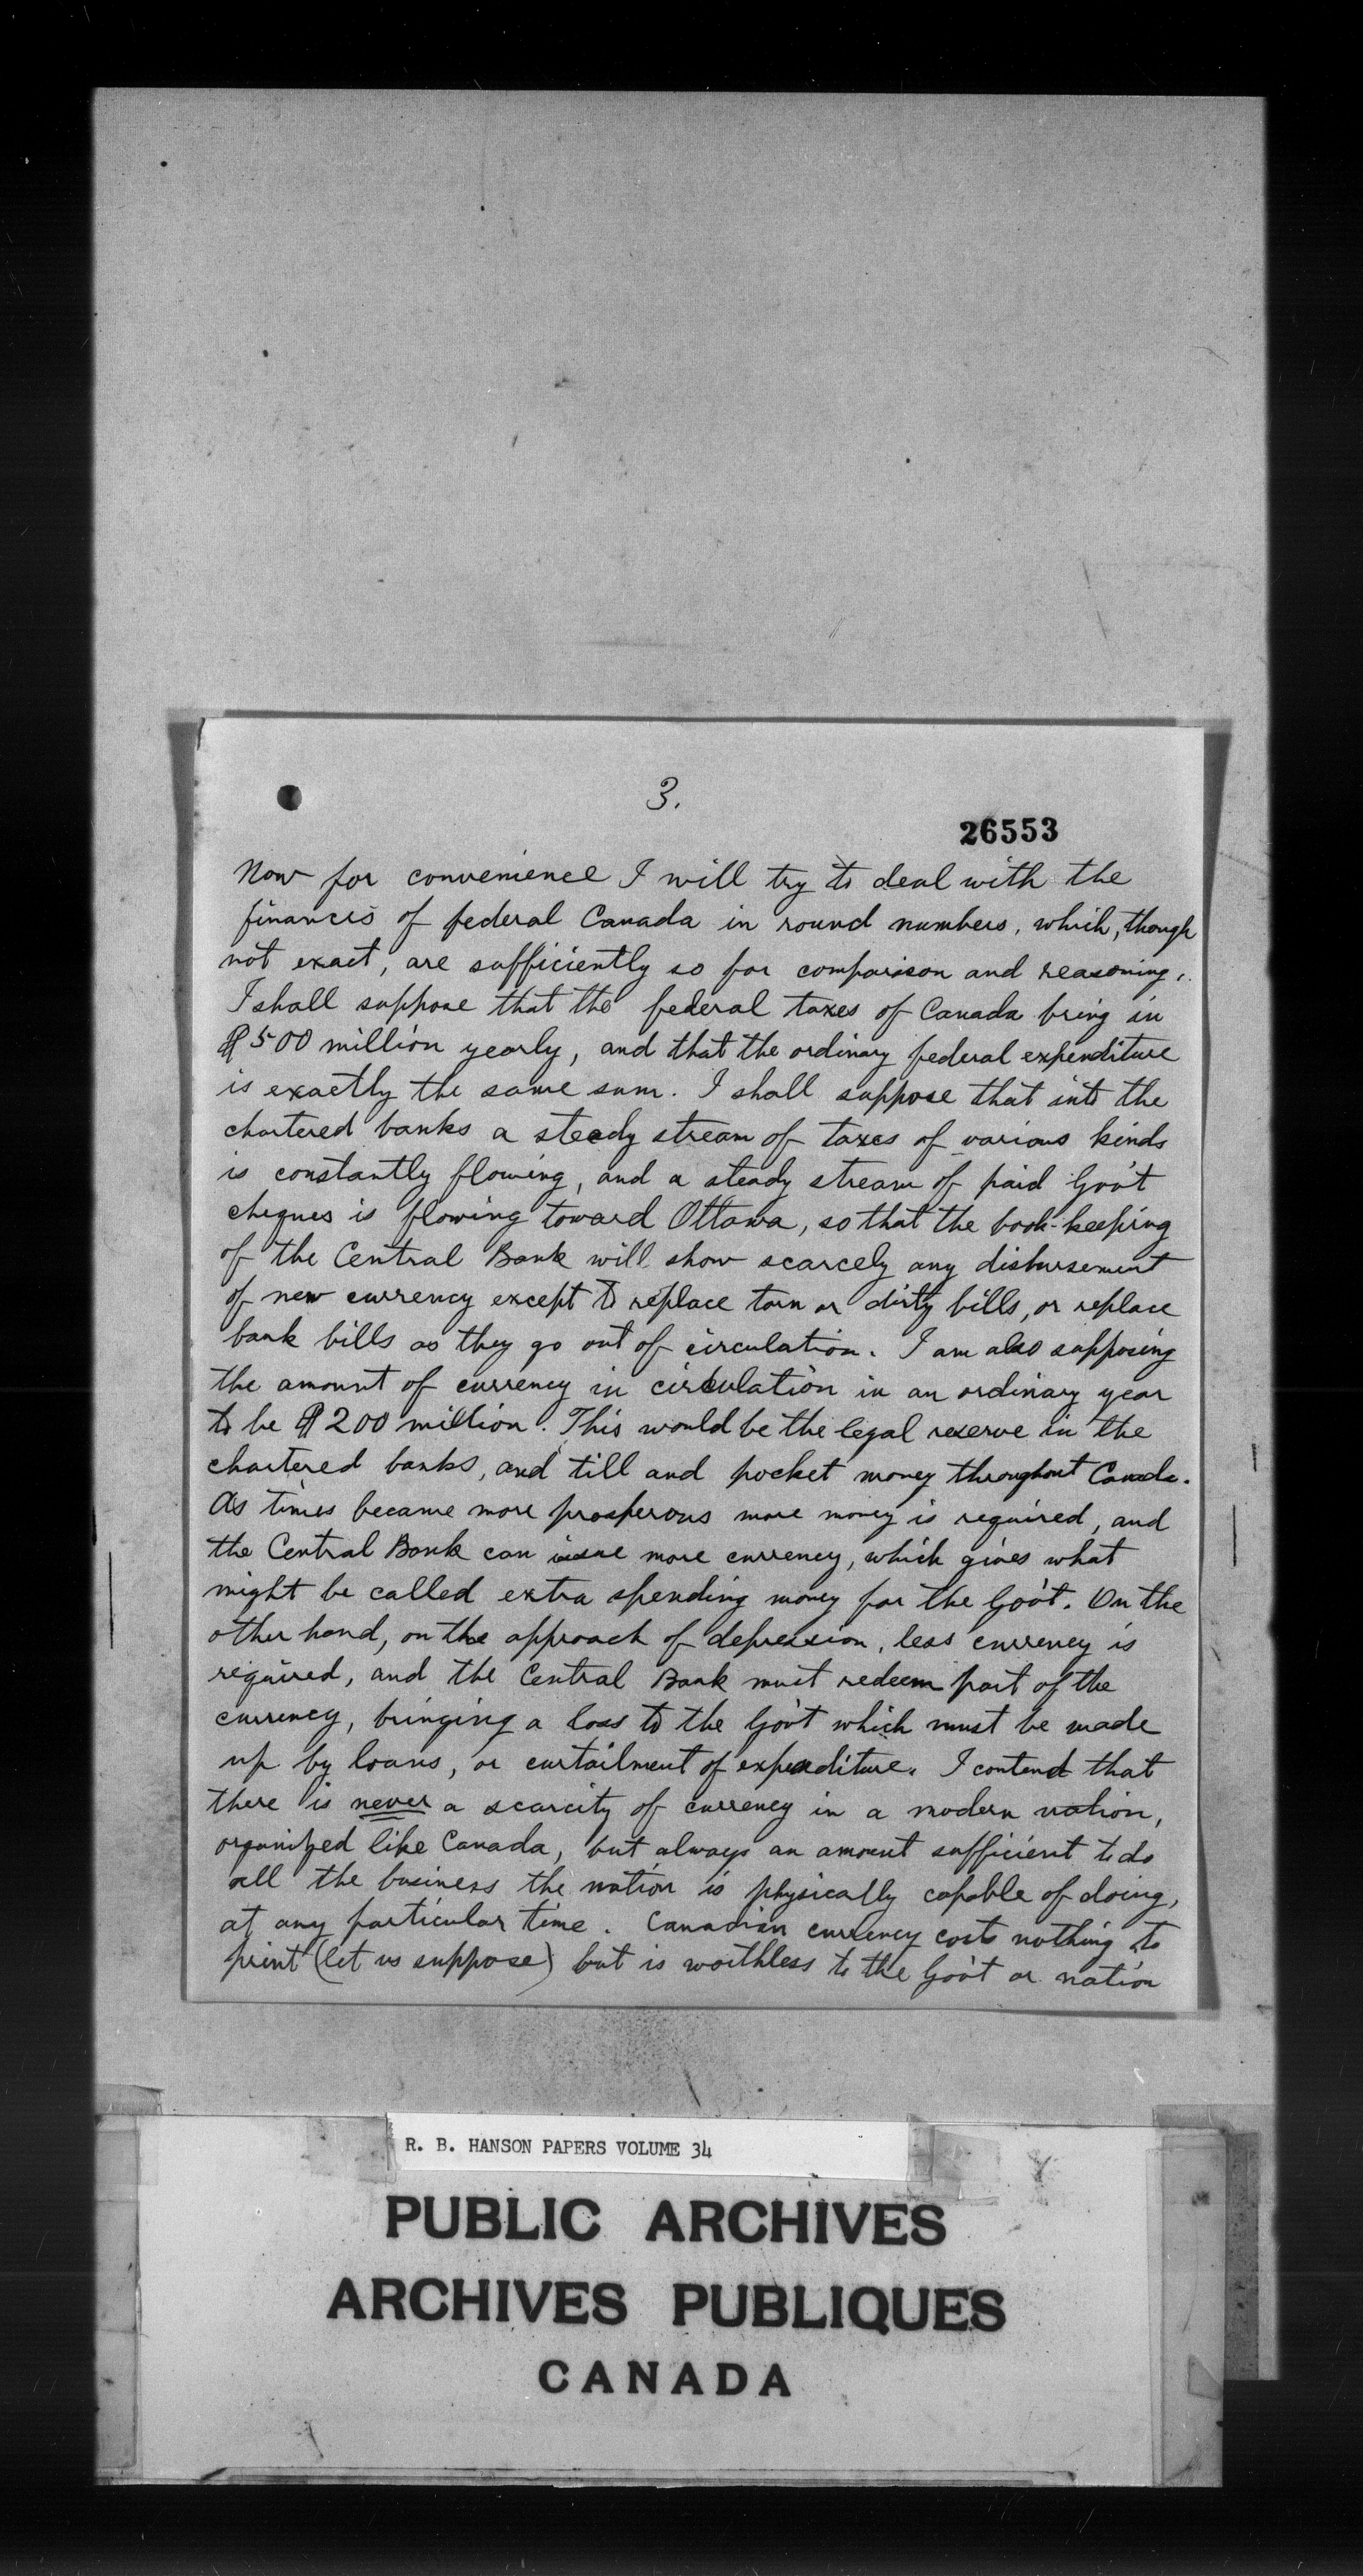 3.
26553
Now for convenience I will try to deal with the
finances of federal Canada in round numbers, which, though
not exact, are sufficiently so for comparison and reasoning.
I shall suppose that the federal taxes of Canada bring in
$500 million yearly, and that the ordinary federal expenditure
is exactly the same sum. I shall suppose that into the
chartered banks a steady stream of taxes of various kinds
is constantly flowing, and a steady stream of paid Gov't
cheques is flowing toward Ottawa, so that the book-keeping
of the Central Bank will show scarcely any disbursement
of new currency except to replace torn or dirty bills, or replace
bank bills as they go out of circulation. I am also supposing
the amount of currency in circulation in an ordinary year
to be $200 million. This would be the legal reserve in the
chartered banks, and till and pocket money throughout Canada.
As times became more prosperous more money is required, and
the Central Bank can issue more currency, which gives what
might be called extra spending money for the Gov't. On the
other hand, on the approach of depression, less currency is
required, and the Central Bank must redeem part of the
currency, bringing a loss to the Gov't which must be made
up by loans, or curtailment of expenditure. I contend that
there is never a scarcity of currency in a modern nation,
organized like Canada, but always an amount sufficient to do
all the business the nation is physically capable of doing,
at any particular time. Canadian currency costs nothing to
print (let us suppose) but is worthless to the Gov't or nation
R. B. HANSON PAPERS VOLUME 34
PUBLIC ARCHIVES
ARCHIVES PUBLIQUES
CANADA